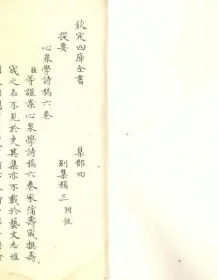 欽定四庫全書 集部四
提要 別集類三
心泉學詩稿六卷
臣等謹案心泉學詩稿六卷宋蒲壽宬撰壽
宬之名不見於史其集亦不載於藝文志惟